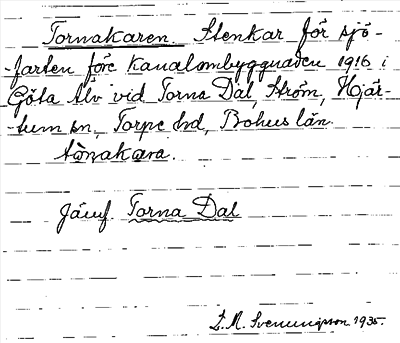 Tornakaren. Stenkar för sjö-
-farten före kanalombyggnaden 1916 i
Göta Älv vid Torna Dal, Ström, Hjär-
-tum sn, Torpe hd, Bohus län.
tònakara.
Jämf. Torna Dal
1935.